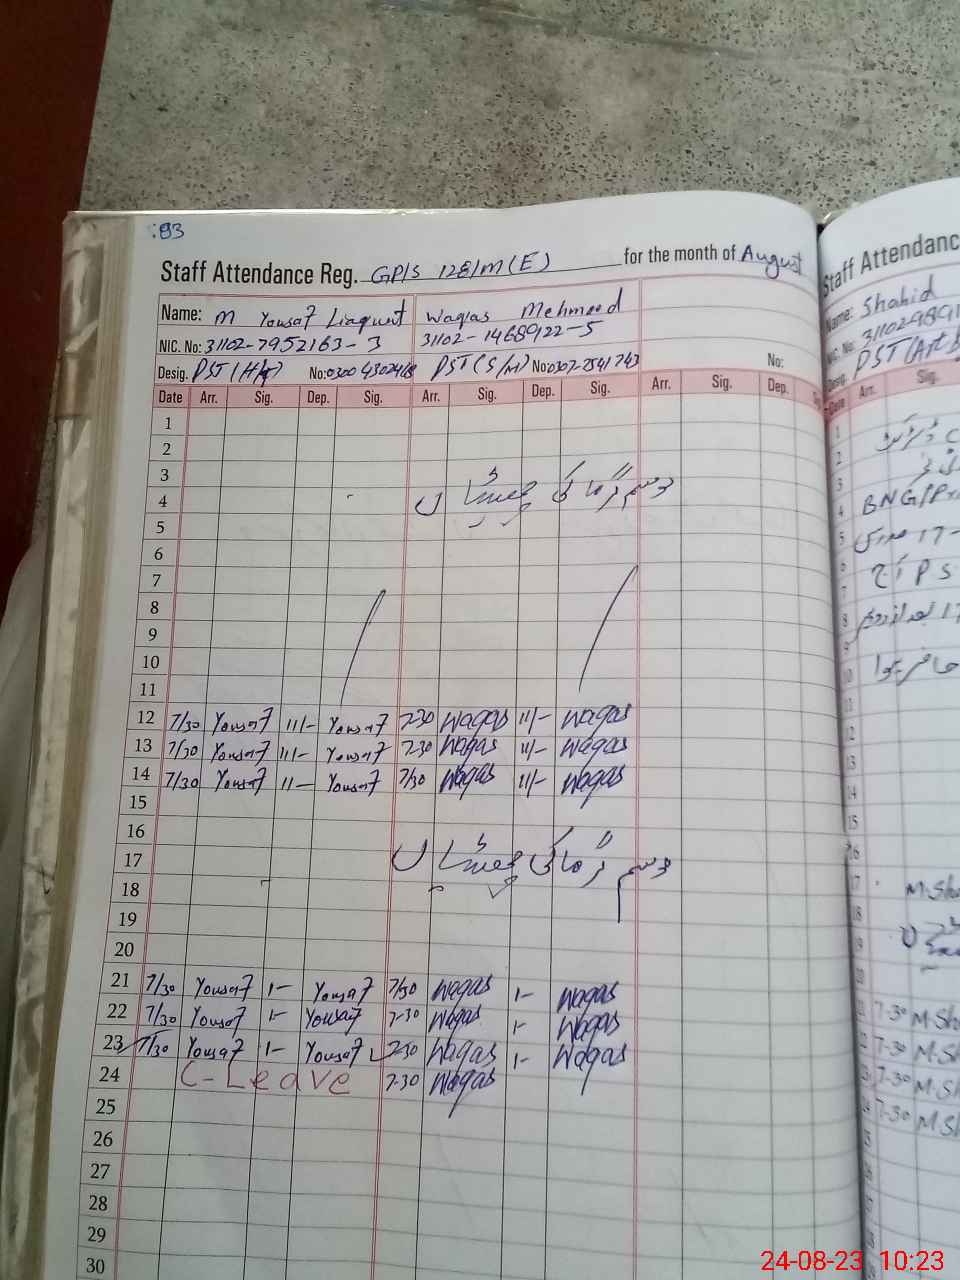 :93
Staff Attendance Reg. GP/S 128/M(E) for the month of August
Name: M Yousaf Liaquat Waqas Mehmood
NIC. No: 31102-7952163-3 31102-1468922-5
Desig. PST No: PST (S/M) No: 0307-7541743 No:
Date Arr. Sig. Dep. Sig. Arr. Sig. Dep. Sig. Arr. Sig. Dep.
1
2
3
4 موسم گرما کی چھٹیاں
5
6
7
8
9
10
11
12 7/30 Yousaf 11/- Yousaf 7-30 Waqas 11/- Waqas
13 7/30 Yousaf 11/- Yousaf 7-30 Waqas 11/- Waqas
14 7/30 Yousaf 11- Yousaf 7/30 Waqas 11/- Waqas
15
16
17 موسم گرما کی چھٹیاں
18
19
20
21 7/30 Yousaf 1- Yousaf 7/30 Waqas 1- Waqas
22 7/30 Yousaf 1- Yousaf 7-30 Waqas 1- Waqas
23 7/30 Yousaf 1- Yousaf 7-30 Waqas 1- Waqas
24 C-Leave 7-30 Waqas
25
26
27
28
29
30
Staff Attendanc
Name: Shahid
NIC. No:
Desig.
Date Arr. Sig.
1
2
3
4
5
6
7 P S
8
10 حاضر ہوا
11
12
13
14
15
16
17 M.Sha
18
19
7-30 M.Sh
7-30 M.Sh
7-30 M.Sh
7-30 M.Sh
24-08-23 10:23